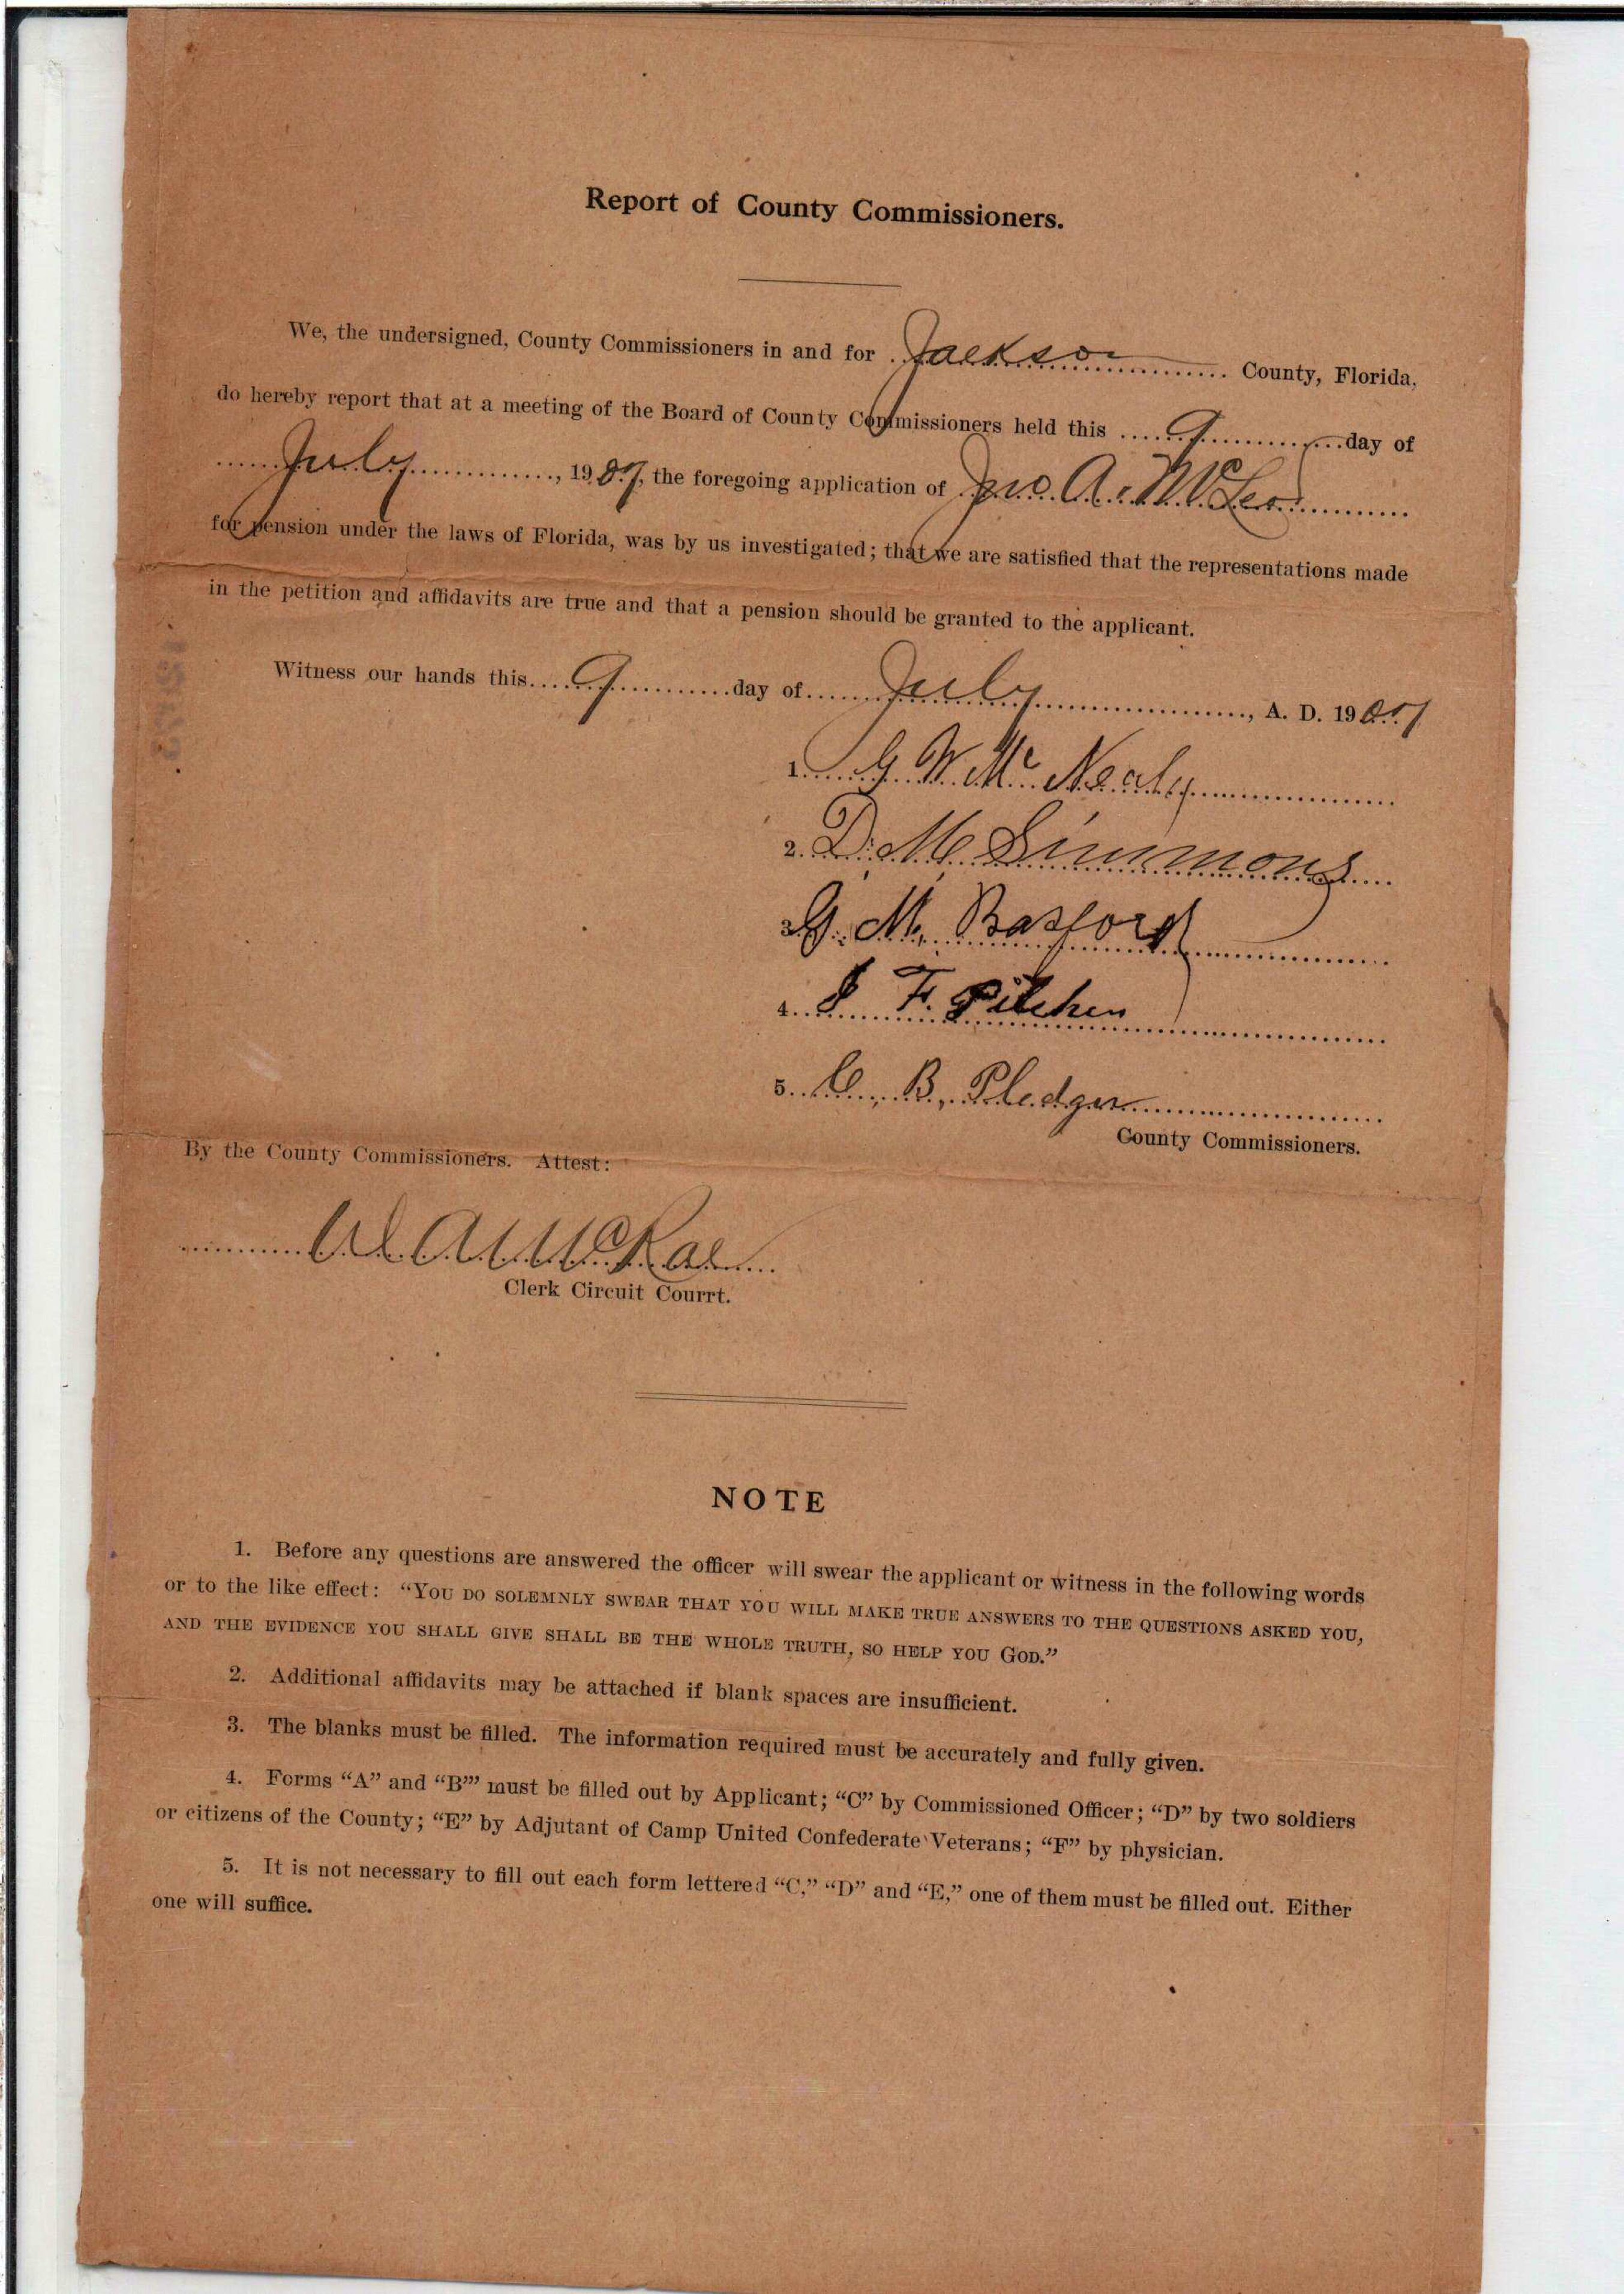 Report of County Commissioners.
We, the undersigned, County Commissioners in and for Jackson County, Florida,
do hereby report that at a meeting of the Board of County Commissioners held this 9 day of
July, 1907, the foregoing application of Jno. A. McLeod
for pension under the laws of Florida, was by us investigated; that we are satisfied that the representations made
in the petition and affidavits are true and that a pension should be granted to the applicant.
Witness our hands this 9 day of July, A. D. 1907
1. G. W. McNealy
2. D. M. Simmons
3. G. M. Basford
4. F.
5. C. B. Pledger
County Commissioners.
By the County Commissioners. Attest:
McRae
Clerk Circuit Courrt.
NOTE
1. Before any questions are answered the officer will swear the applicant or witness in the following words
or to the like effect: “YOU DO SOLEMNLY SWEAR THAT YOU WILL MAKE TRUE ANSWERS TO THE QUESTIONS ASKED YOU,
AND THE EVIDENCE YOU SHALL GIVE SHALL BE THE WHOLE TRUTH, SO HELP YOU GOD.”
2. Additional affidavits may be attached if blank spaces are insufficient.
3. The blanks must be filled. The information required must be accurately and fully given.
4. Forms “A” and “B”’ must be filled out by Applicant; “C” by Commissioned Officer; “D” by two soldiers
or citizens of the County; “E” by Adjutant of Camp United Confederate Veterans; “F” by physician.
5. It is not necessary to fill out each form lettered “C,” “D” and “E,” one of them must be filled out. Either
one will suffice.